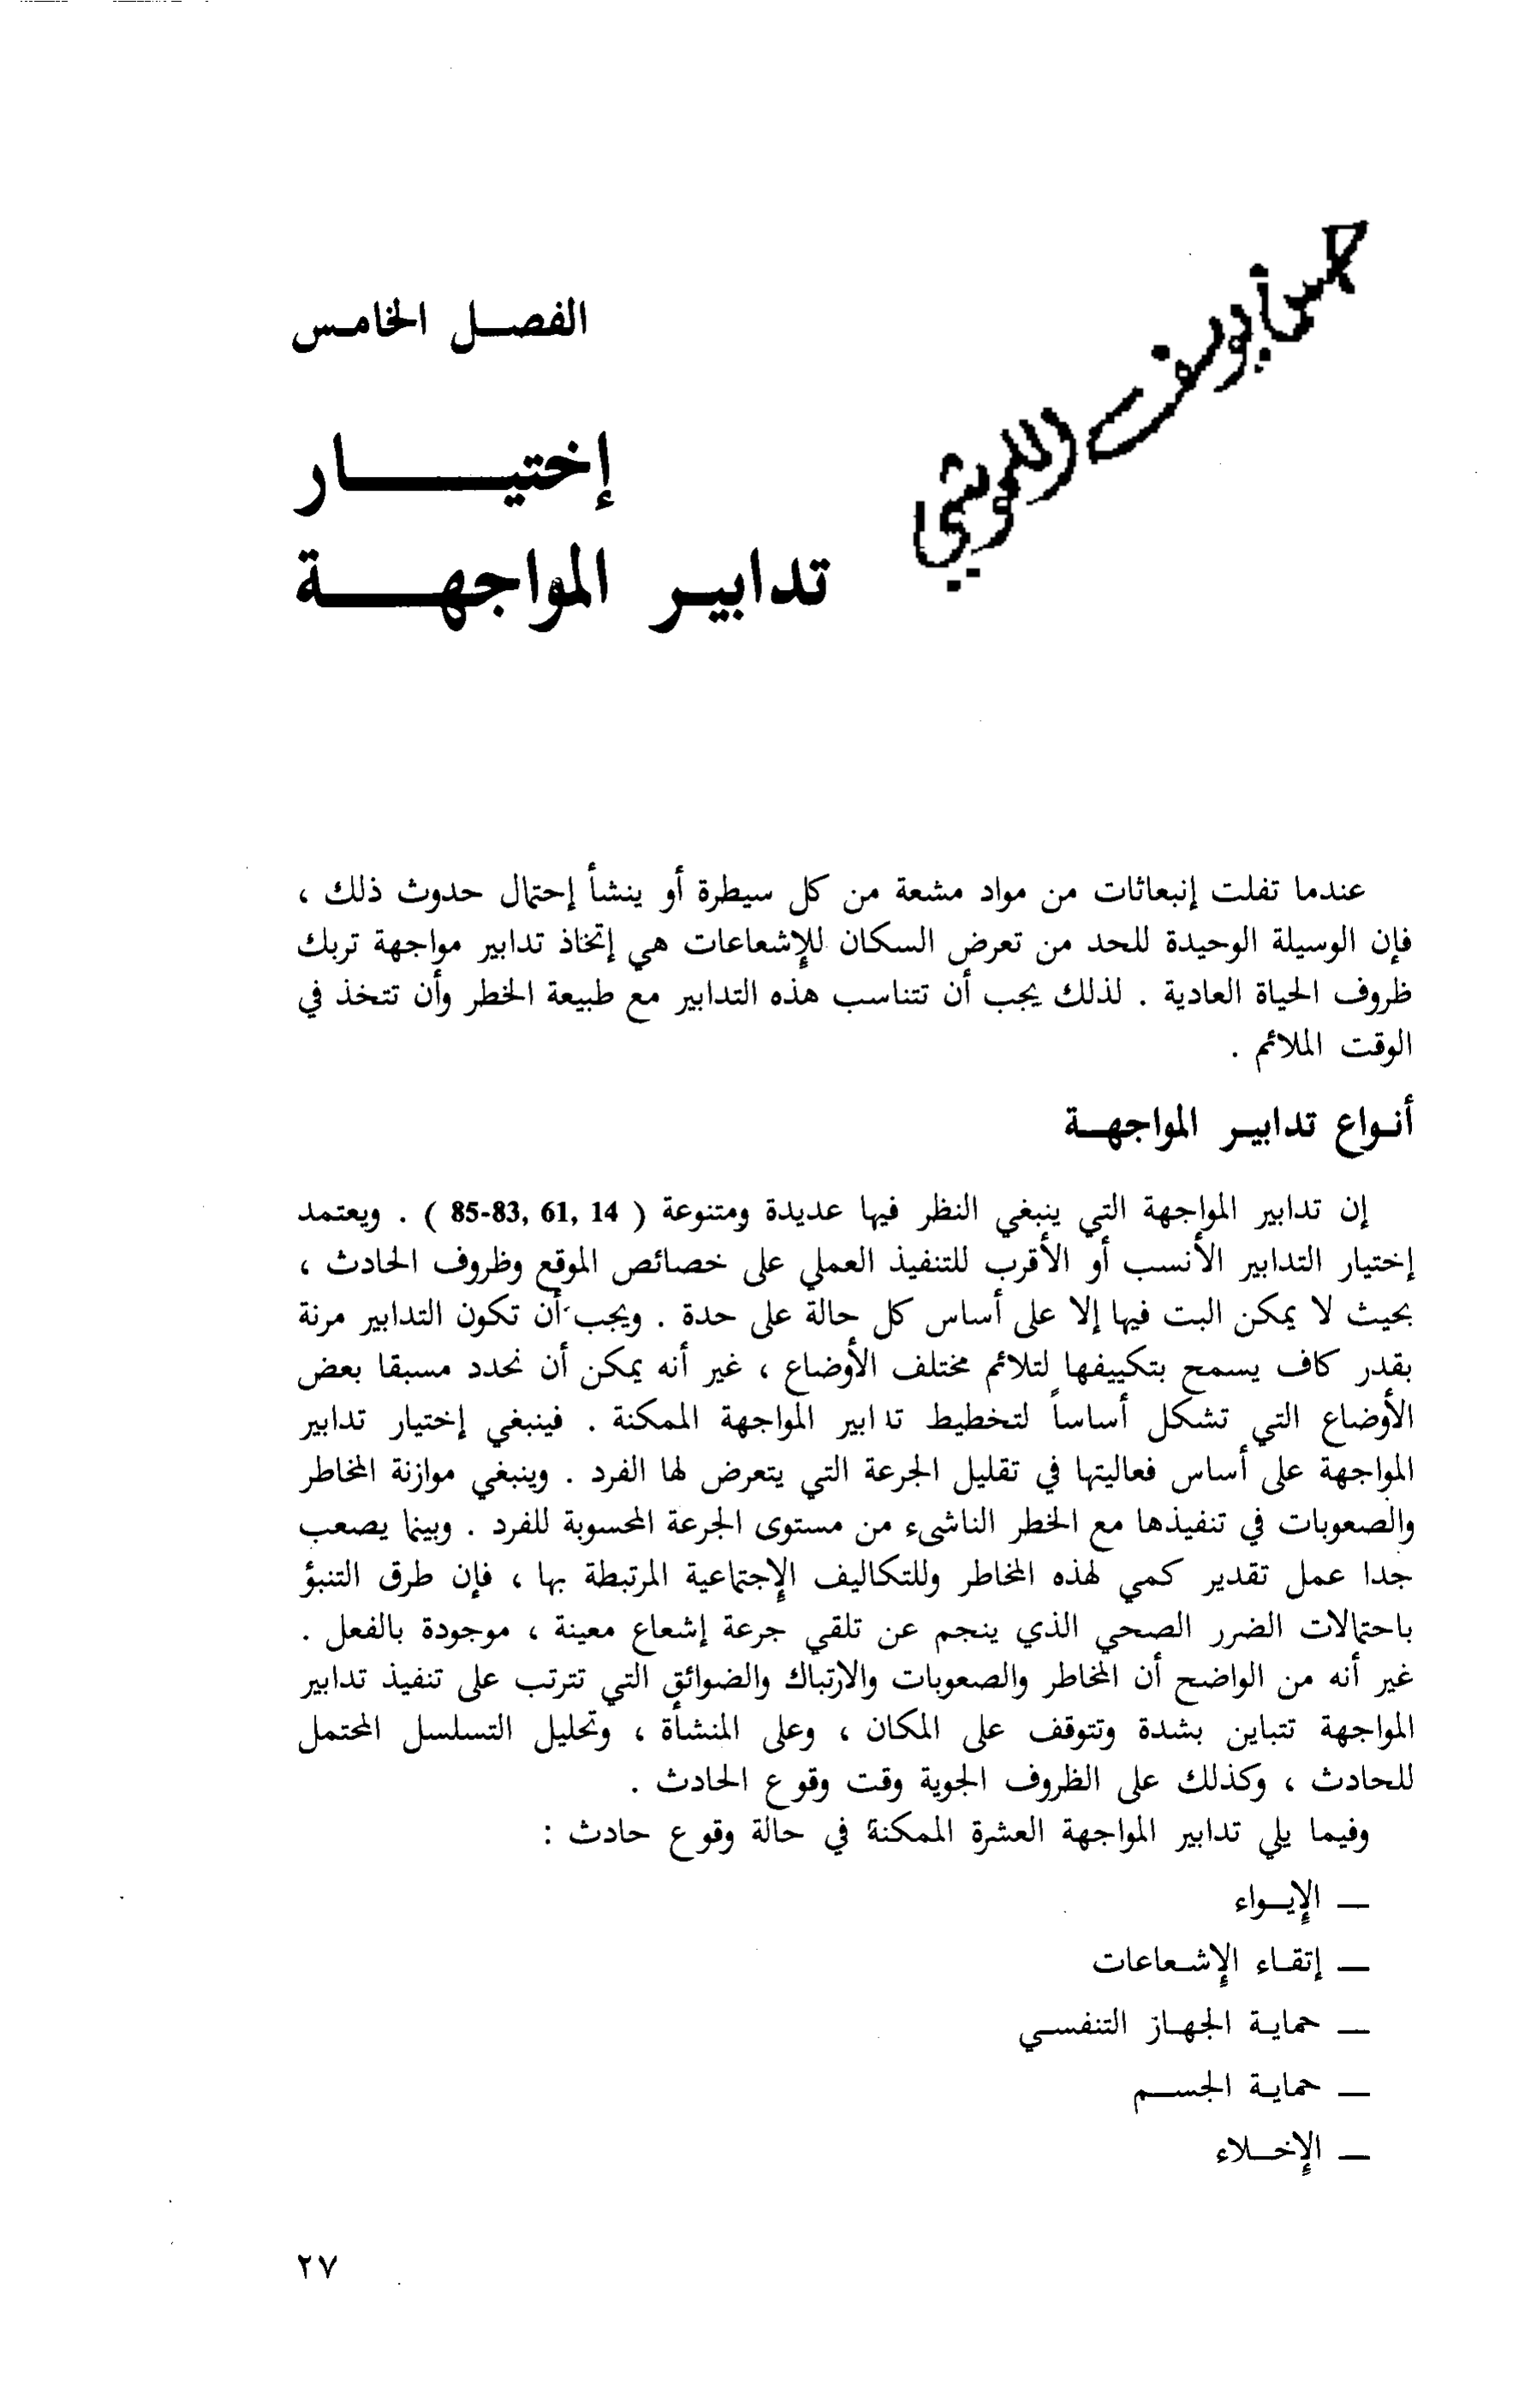 الفصل الخامس
إختيار
تدابير المواجهة
عندما تفلت إنبعاثات من مواد مشعة من كل سيطرة أو ينشأ إحتمال حدوث ذلك ،
فإن الوسيلة الوحيدة للحد من تعرض السكان للإشعاعات هي إتخاذ تدابير مواجهة تربك
ظروف الحياة العادية . لذلك يجب أن تتناسب هذه التدابير مع طبيعة الخطر وأن تتخذ في
الوقت الملائم .
أنواع تدابير المواجهة
إن تدابير المواجهة التي ينبغي النظر فيها عديدة ومتنوعة ( 14 ,61 ,83-85 ) . ويعتمد
إختيار التدابير الأنسب أو الأقرب للتنفيذ العملي على خصائص الموقع وظروف الحادث ،
بحيث لا يمكن البت فيها إلا على أساس كل حالة على حدة . ويجب أن تكون التدابير مرنة
بقدر كاف يسمح بتكييفها لتلائم مختلف الأوضاع ، غير أنه يمكن أن نحدد مسبقا بعض
الأوضاع التي تشكل أساساً لتخطيط تدابير المواجهة الممكنة . فينبغي إختيار تدابير
المواجهة على أساس فعاليتها في تقليل الجرعة التي يتعرض لها الفرد . وينبغي موازنة المخاطر
والصعوبات في تنفيذها مع الخطر الناشىء من مستوى الجرعة المحسوبة للفرد . وبينما يصعب
جدا عمل تقدير كمي لهذه المخاطر وللتكاليف الإجتماعية المرتبطة بها ، فإن طرق التنبؤ
باحتمالات الضرر الصحي الذي ينجم عن تلقي جرعة إشعاع معينة ، موجودة بالفعل .
غير أنه من الواضح أن المخاطر والصعوبات والارتباك والضوائق التي تترتب على تنفيذ تدابير
المواجهة تتباين بشدة وتتوقف على المكان ، وعلى المنشأة ، وتحليل التسلسل المحتمل
للحادث ، وكذلك على الظروف الجوية وقت وقوع الحادث .
وفيما يلي تدابير المواجهة العشرة الممكنة في حالة وقوع حادث :
— الإيواء
— إتقاء الإشعاعات
— حماية الجهاز التنفسي
— حماية الجسم
— الإخلاء
٢٧